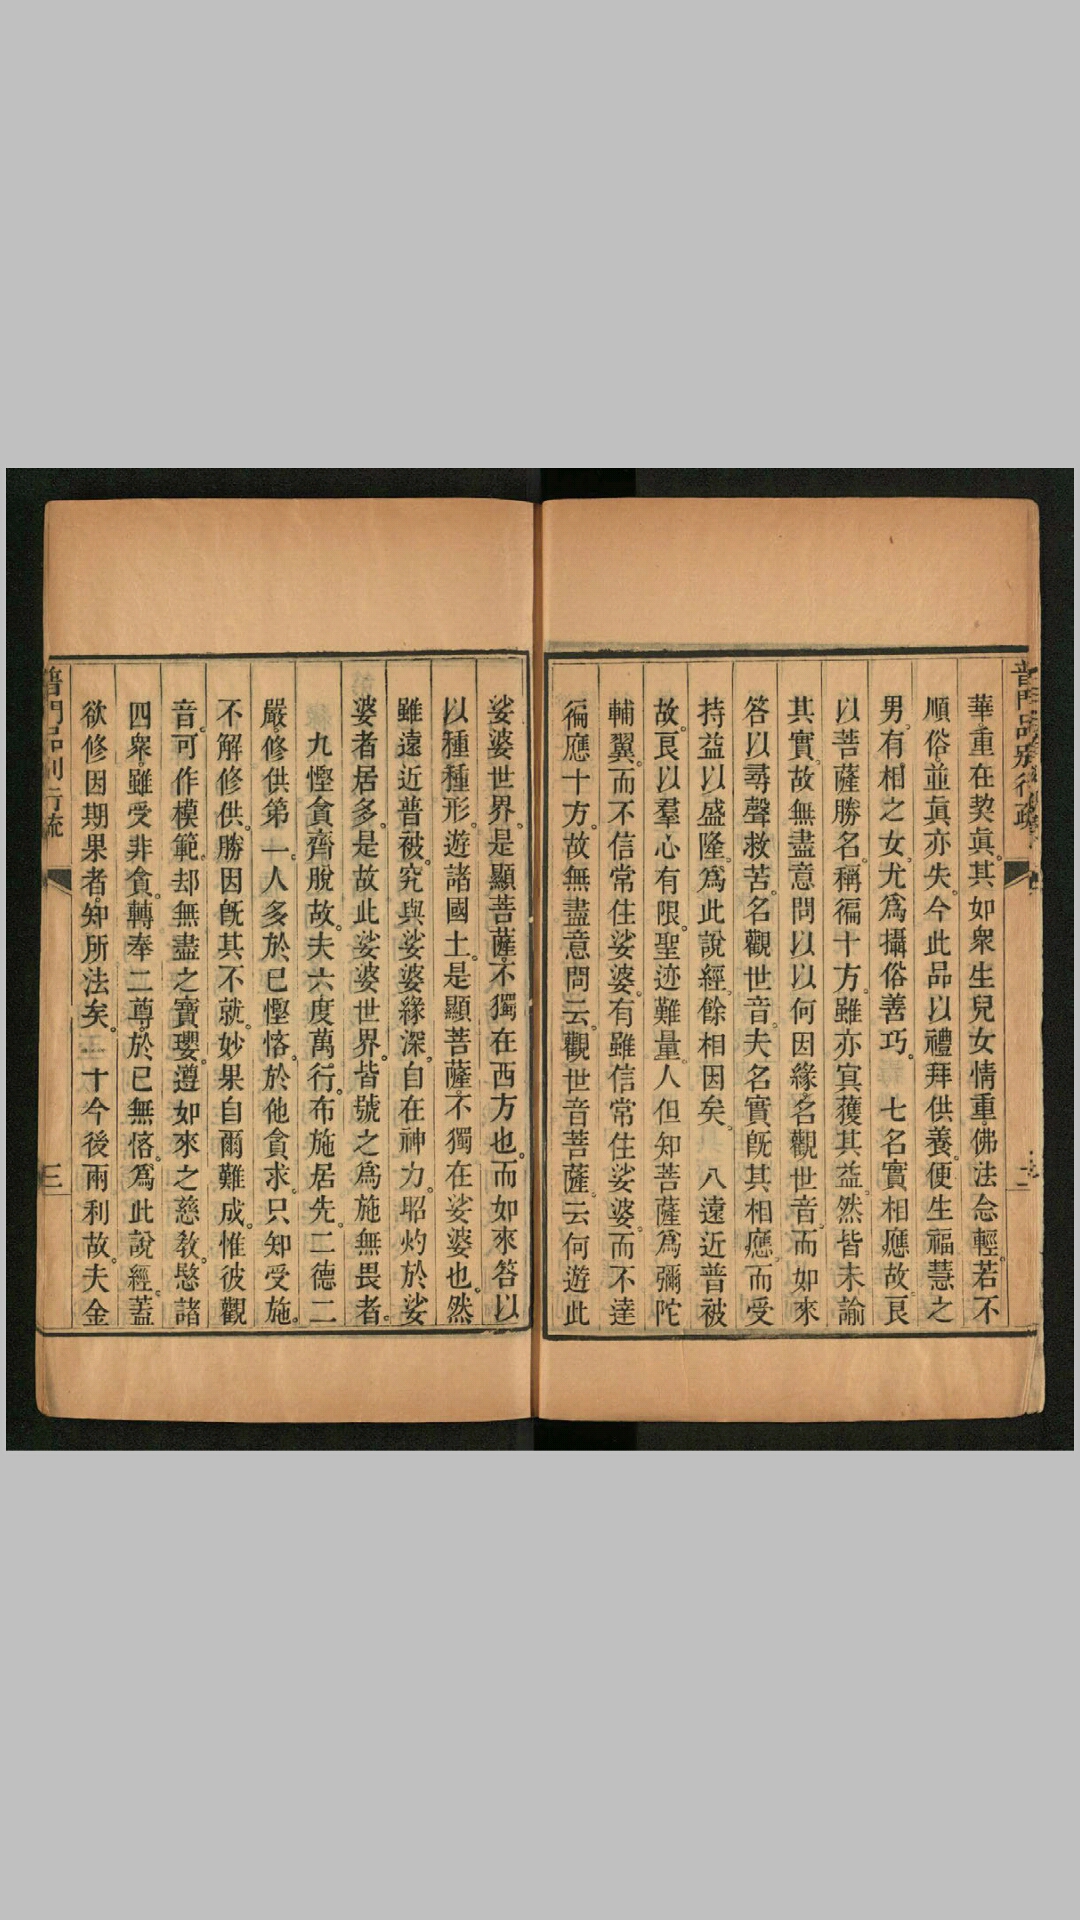 普門品別行疏
華。重在契眞。其如衆生兒女情重。佛法念輕。若不
順俗。並眞亦失。今此品以禮拜供養。便生福慧之
男。有相之女。尤爲攝俗善巧。 七名實相應故。良
以菩薩勝名。稱徧十方。雖亦寘獲其益。然皆未諭
其實。故無盡意問以以何因緣。名觀世音。而如來
答以尋聲救苦。名觀世音。夫名實旣其相應。而受
持益以盛隆。爲此說經。餘相因矣。 八遠近普被
故。良以羣心有限。聖迹難量。人但知菩薩爲彌陀
輔翼。而不信常住娑婆。有雖信常住娑婆。而不達
徧應十方。故無盡意問云。觀世音菩薩。云何遊此
娑婆世界。是顯菩薩。不獨在西方也。而如來答以
以種種形。遊諸國土。是顯菩薩。不獨在娑婆也。然
雖遠近普被。究與娑婆緣深。自在神力。昭灼於娑
婆者居多。是故此娑婆世界。皆號之爲施無畏者。
九慳貪齊脫故。夫六度萬行。布施居先。二德二
嚴。修供第一。人多於已慳悋。於他貪求。只知受施。
不解修供。勝因旣其不就。妙果自爾難成。惟彼觀
音。可作模範。却無盡之寶瓔。遵如來之慈敎。愍諸
四衆。雖受非貪。轉奉二尊。於已無悋。爲此說經。蓋
欲修因期果者。知所法矣。 十今後兩利故。夫金
普門品別行疏
三